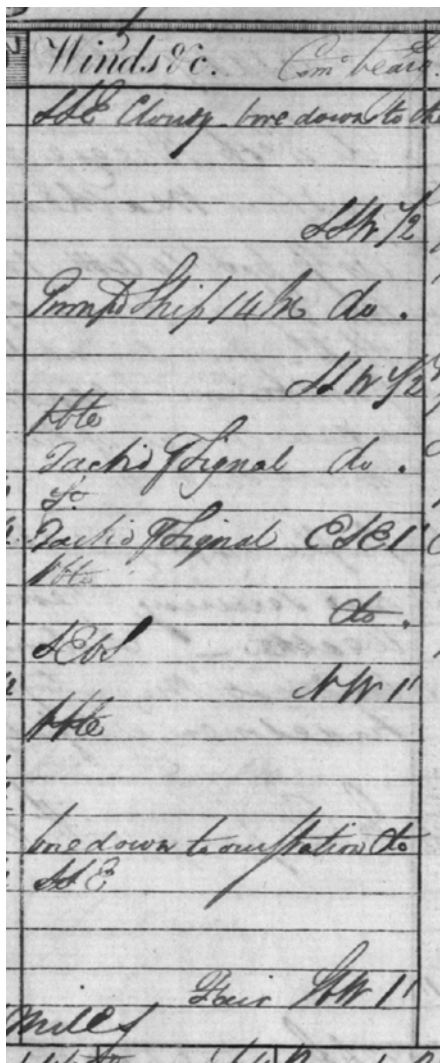 Winds &c. Comr bears
SSE Cloudy bore down to the
SSW 1/2
Pump'd Ship 14 In do .
SSW 1/2
Vble
Tack'd Pr Signal do .
So
Tack'd Pr Signal ESE 1'
Vble
do .
SEbS
NW 1'
Vble
bore down to our Station do
SSE
Fair 1'
Miles